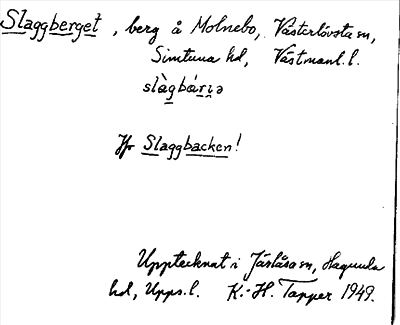 Slaggberget, berg å Molnebo, Västerlövsta sn,
Simtuna hd, Västmanl. l.
slàgbárıə
Jfr Slaggbacken!
Upptecknat i Järlåsa sn, Hagunda
hd, Upps. l. K.-H. Tapper 1949.